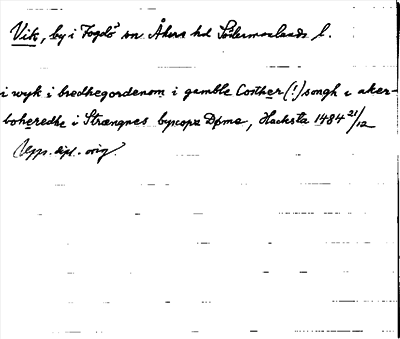 Vik, by i Fogdö sn Åkers hd Södermanlands l.
i wyk i bredhegordenom i gamble Costher (!) songh i aker-
boheredhe i Strængnes byscopx Døme, Hacksta 1484 21/12
Upps. dipl. orig.